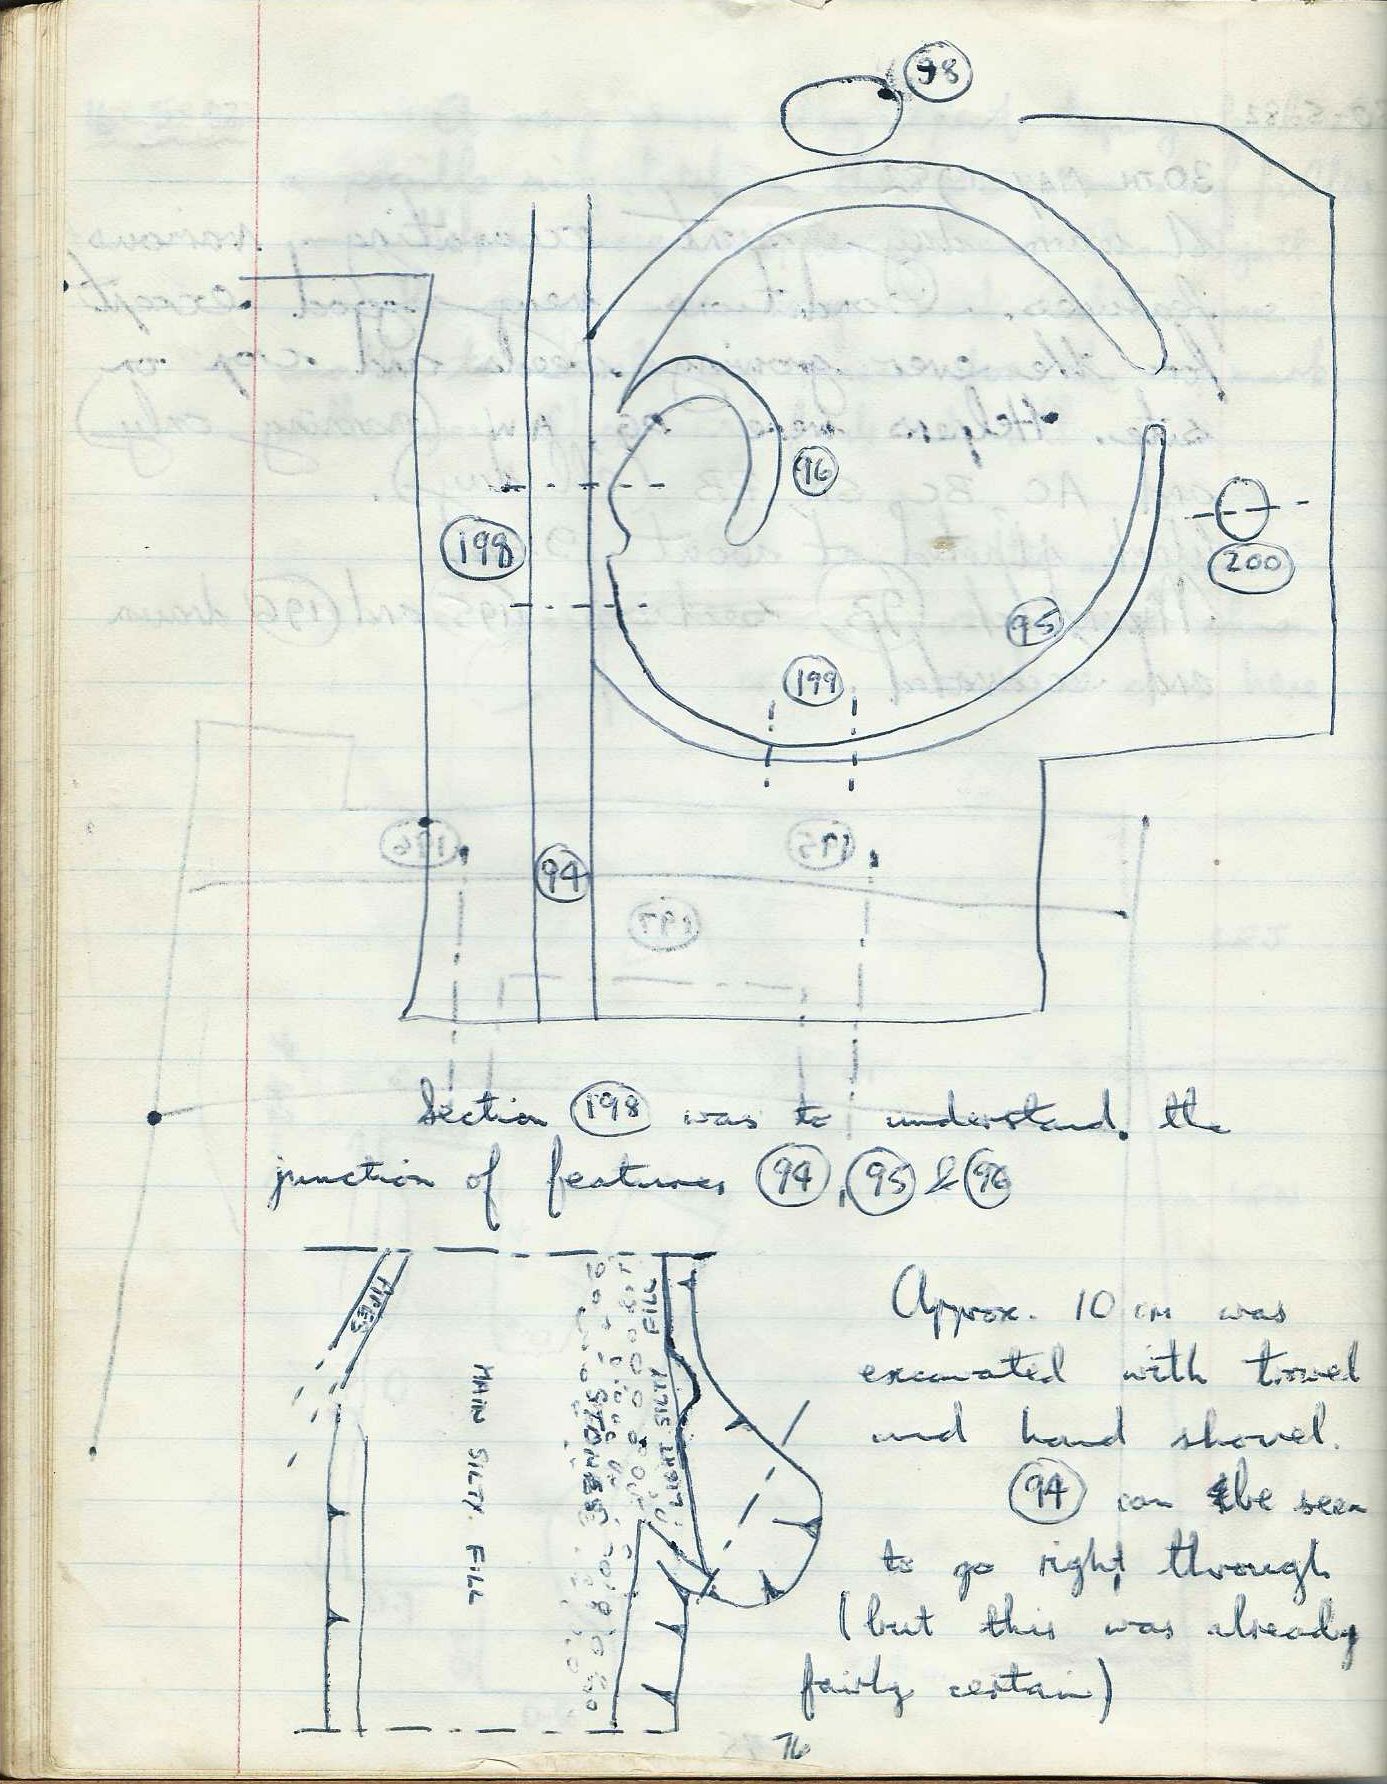 98
96
198
200
95
199
94
Section 198 was to understand. the
junction of features 94, 95 & 96
PIPES
MAIN SILTY FILL
STONES
LIGHT SILTY
FILL
Approx. 10 cm was
excavated with trowel
and hand shovel.
94 can be seen
to go right through
(but this was already
fairly certain)
76